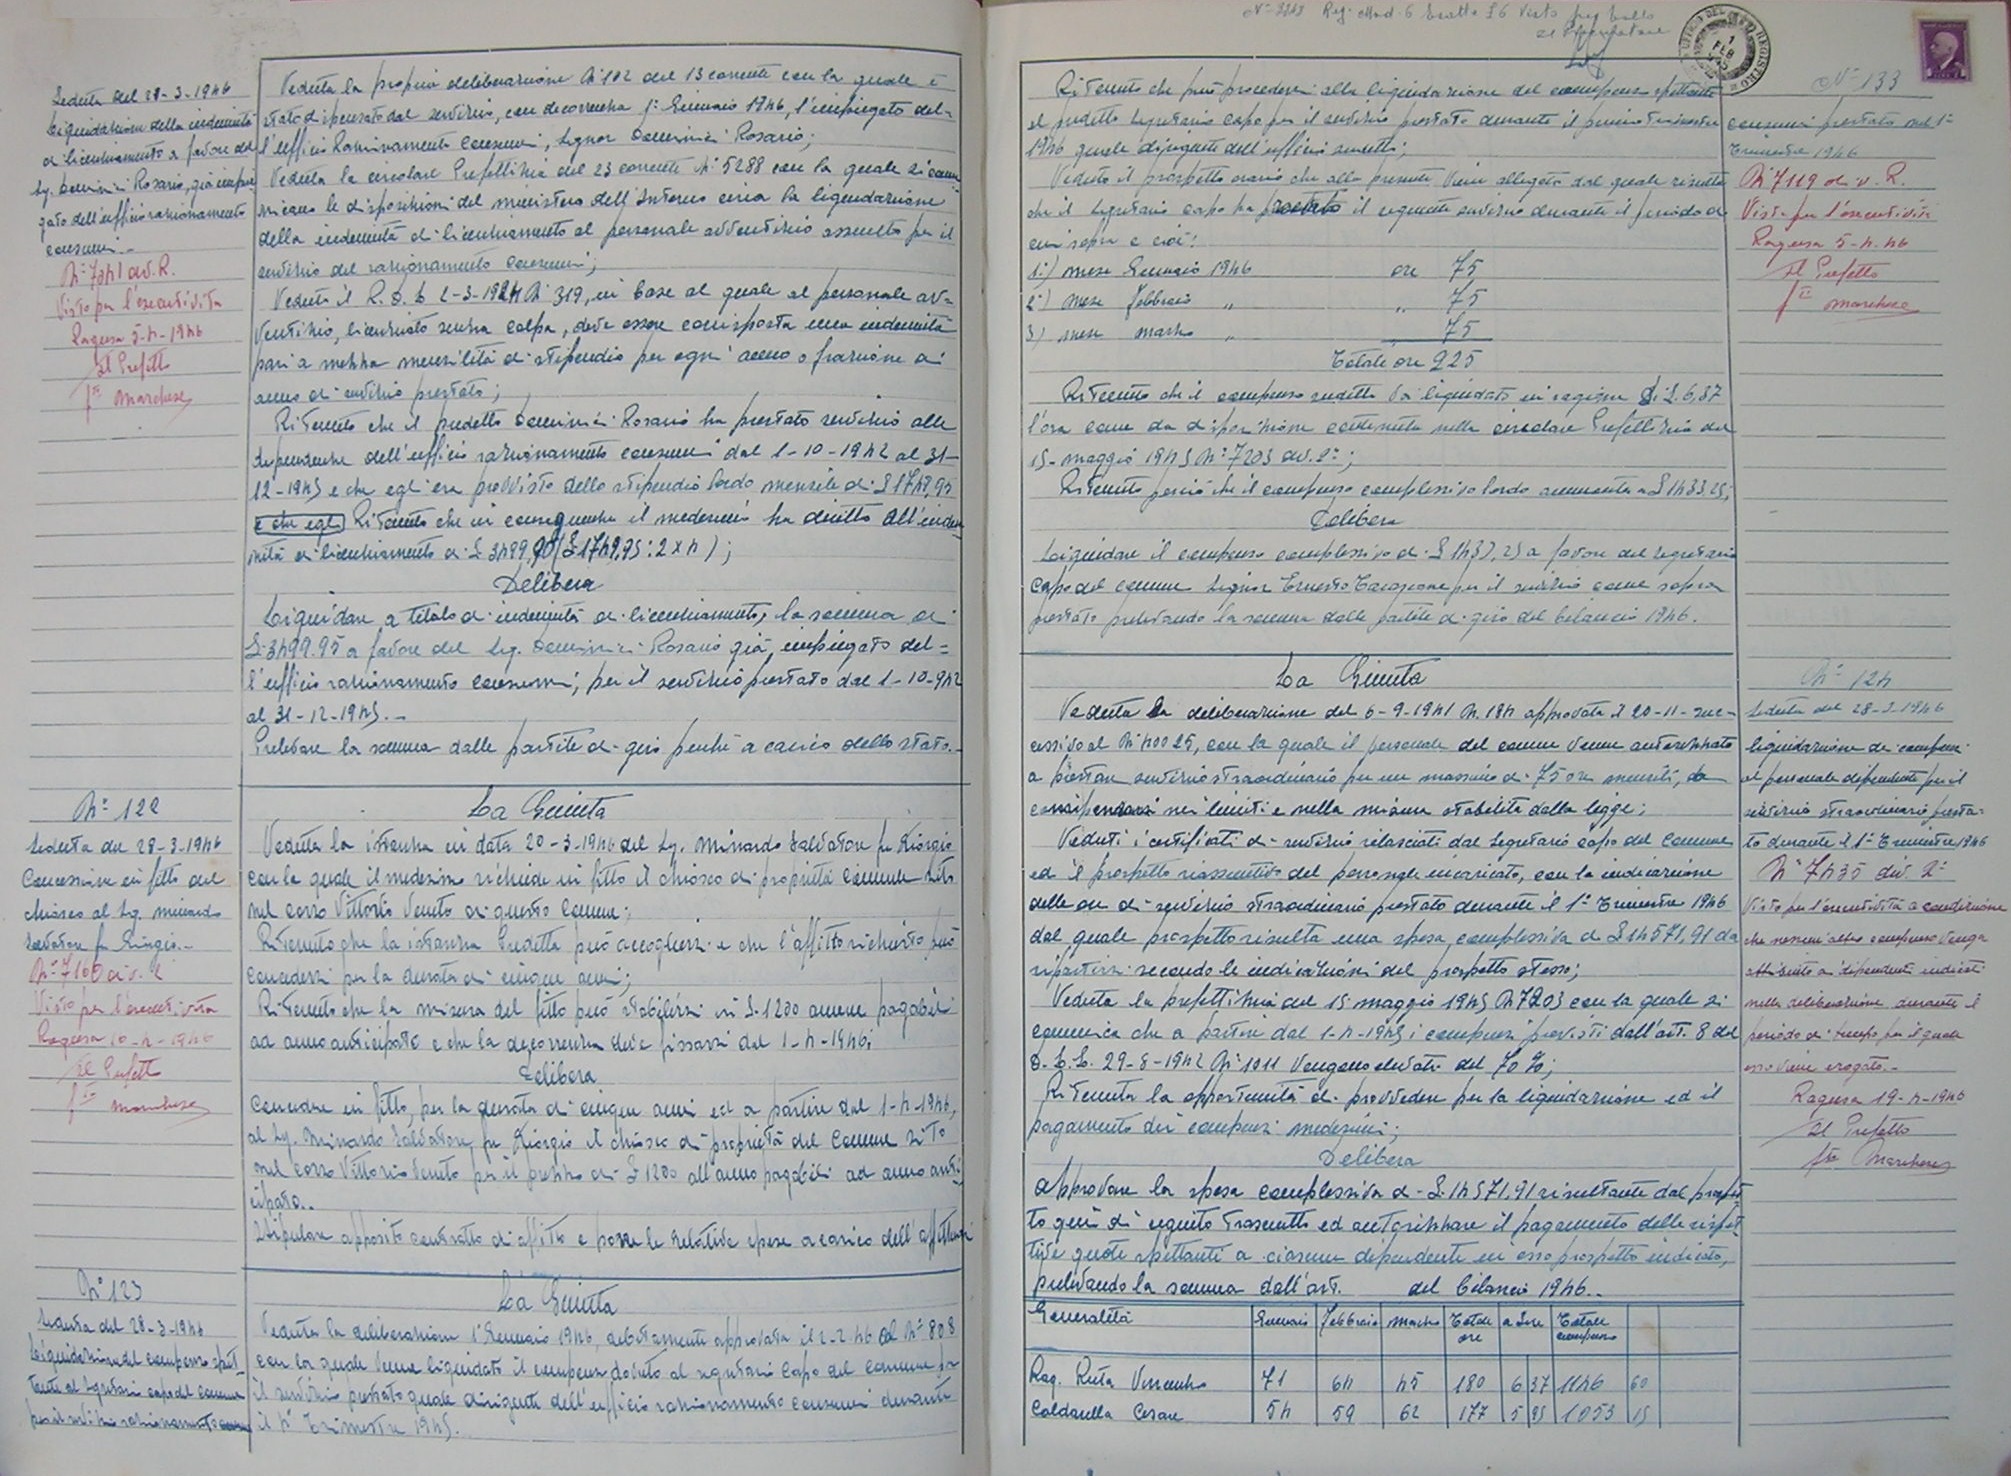 Seduta del 28-3-1946
Liquidazione della indennità
di licenziamento a favore del
Sig. Rosario, già impie
gato dell'ufficio razionamento
consumi.-
Visto per l'esecutività
Ragusa 5-4-1946
Il Prefetto
fto Marchese
Veduta la propria deliberazione N. 102 del 13 corrente con la quale è
stato dispensato dal servizio, con decorrenza 1° Gennaio 1946, l'impiegato del-
l'ufficio Razionamento consumi, Signor Rosario;
Veduta la circolare Prefettizia del 23 corrente N. 5288 con la quale si comu-
nicano le disposizioni del ministero dell'Interno circa la liquidazione
della indennità di licenziamento al personale avventizio assunto per il
servizio del razionamento consumi;
Veduto il R. D. L 2-3-1924 N. 319, in base al quale al personale av-
ventizio, licenziato senza colpa, deve essere corrisposta una indennità
pari a mezza mensilità di stipendio per ogni anno o frazione di
anno di servizio prestato;
Ritenuto che il predetto Rosario ha prestato servizio alle
dipendenze dell'ufficio razionamento consumi dal 1-10-1942 al 31-
12-1945 e che egli era provvisto dello stipendio lordo mensile di £ 1749,95
e che egli Ritenuto che in conseguenza il medesimo ha diritto all'inden
nità di licenziamento di £ 3499,90 (£ 1749,95:2x4);
Delibera
Liquidare a titolo di indennità di licenziamento, la somma di
£. 3499.95 a favore del Sig. Rosario già impiegato del=
l'ufficio razionamento consumi, per il servizio prestato dal 1-10-942
al 31-12-1945.-
Prelevare la somma dalle partite di giro perché a carico dello stato.-
N° 122
Seduta del 28-3-1946
Concessione in fitto del
chiosco al Sig. Minardo
Salvatore fu Giorgio.-
N° 7100 div. 2
Visto per l'esecutività
Ragusa 10-4-1946
Il Prefetto
fto Marchese
La Giunta
Veduta la istanza in data 20-3-1946 del Sig. Minardo Salvatore fu Giorgio
con la quale il medesimo richiede in fitto il chiosco di proprietà comunale sito
nel corso Vittorio Veneto di questo Comune;
Ritenuto che la istanza predetta può accogliersi e che l'affitto richiesto può
concedersi per la durata di cinque anni;
Ritenuto che la misura del fitto può stabilirsi in £. 1200 annue pagabili
ad anno anticipato e che la decorrenza deve fissarsi dal 1-4-1946;
Delibera
Concedere in fitto, per la durata di cinque anni ed a partire dal 1-4-1946,
al Sig. Minardo Salvatore fu Giorgio il chiosco di proprietà del Comune sito
nel corso Vittorio Veneto per il prezzo di £ 1200 all'anno pagabili ad anno anti
cipato..
Stipulare apposito contratto di affitto e porre le relative spese a carico dell'
N° 123
Seduta del 28-3-1946
Liquidazione del compenso spet
tante al Segretario capo del comune
per il servizio razionamento
La Giunta
Veduta la deliberazione 1° Gennaio 1946, debitamente approvata il 2-2-46 al N° 808
con la quale venne liquidato il compenso dovuto al segretario Capo del comune per
il servizio prestato quale dirigente dell'ufficio razionamento consumi durante
il 4° Trimestre 1945.
Ritenuto che può procedersi alla liquidazione del compenso spettante
al predetto Segretario capo per il servizio prestato durante il primo trimestre
1946 quale dirigente dell'ufficio suddetto;
Veduto il prospetto orario che alla presente viene allegato dal quale risulta
che il Segretario capo ha prestato il seguente servizio durante il periodo di
cui sopra e cioè:
1°) mese Gennaio 1946 ore 75
2°) mese febbraio " " 75
3) mese marzo " 75
Totale ore 225
Ritenuto che il compenso suddetto va liquidato in ragione di £. 6,37
l'ora come da disposizione contenuta nella circolare Prefettizia del
15-maggio 1945 N° 7203 div. 2°;
Ritenuto perciò che il compenso complessivo lordo ammonta a £ 1433.25;
Delibera
Liquidare il compenso complessivo di £ 1433,25 a favore del Segretario
Capo del comune Signor Ernesto per il servizio come sopra
prestato prelevando la somma dalle partite di giro del bilancio 1946.
N° 133
consumi prestato nel 1°
Trimestre 1946
N° 7119 div. R.
Visto per l'esecutività
Ragusa 5-4-46
Il Prefetto
fto Marchese
La Giunta
Veduta la deliberazione del 6-9-1941 N. 184 approvata il 20-11-suc-
cessivo al N° 40025, con la quale il personale del comune venne autorizzato
a prestare servizio straordinario per un massimo di 75 ore mensili, da
compensarsi nei limiti e nella misura stabilita dalla legge;
Veduti i certificati di servizio rilasciati dal Segretario capo del Comune
ed il prospetto riassuntivo del personale incaricato, con la indicazione
delle ore di servizio straordinario prestato durante il 1° Trimestre 1946
dal quale prospetto risulta una spesa complessiva di £ 14571,91 da
ripartirsi secondo le indicazioni del prospetto stesso;
Veduta la prefettizia del 15 maggio 1945 N 7203 con la quale si
comunica che a partire dal 1-4-1945 i compensi previsti dall'art. 8 del
D. L. L. 29-8-1942 N° 1011 vengono elevati del 70%;
Ritenuta la opportunità di provvedere per la liquidazione ed il
pagamento dei compensi medesimi;
Delibera
Approvare la spesa complessiva di £. 14571,91 risultante dal prospet
to qui di seguito trascritto ed autorizzare il pagamento delle rispet
tive quote spettanti a ciascun dipendente in esso prospetto indicato,
prelevando la somma dall'art. del bilancio 1946.-
N° 124
Seduta del 28-3-1946
liquidazione dei compensi
al personale dipendente per il
servizio straordinario presta-
to durante il 1° Trimestre 1946
N° 7435 div. 2°
Visto per l'esecutività a condizione
che nessun altro compenso venga
attribuito ai dipendenti indicati
nella deliberazione durante il
periodo di tempo per il quale
esso viene erogato.-
Ragusa 19-4-1946
Il Prefetto
fto Marchese
Generalità Gennaio febbraio marzo Totale ore a Lire Totale compenso
Rag. Ruta Vincenzo 71 64 45 180 6 37 1146 60
Caldarella Cesare 54 59 62 177 5 95 1053 15